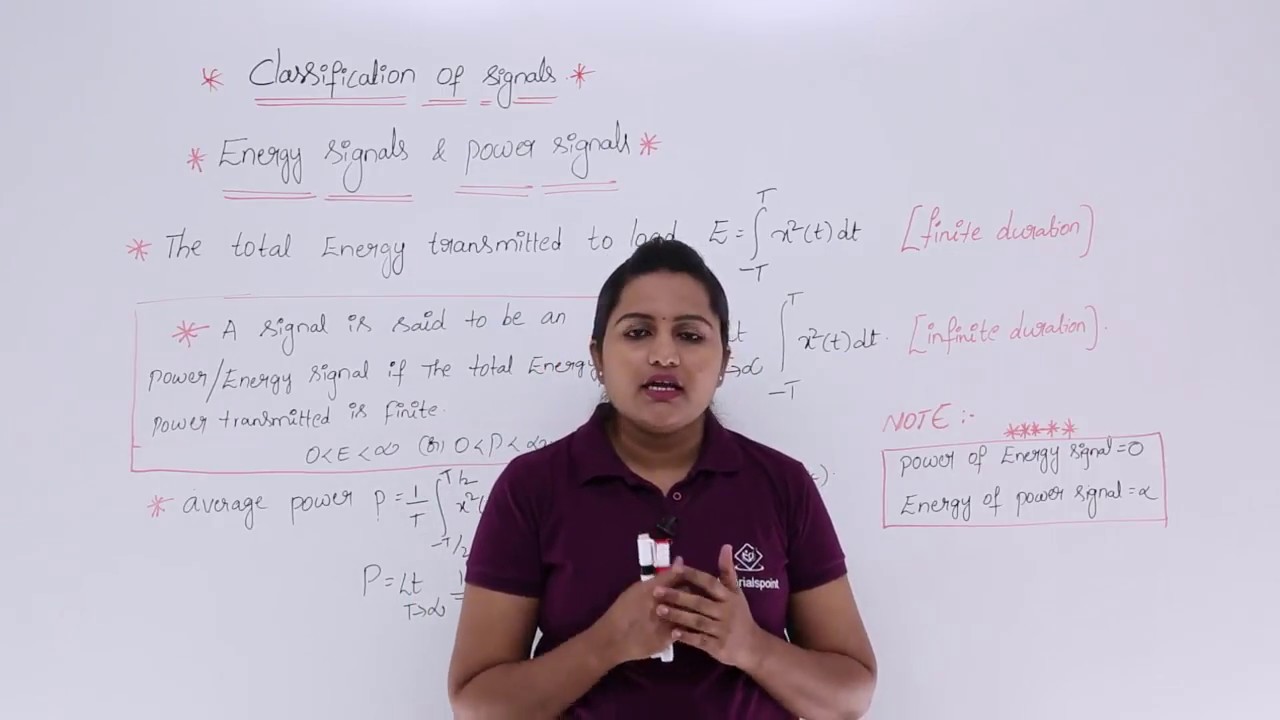 * Classification of signals *
* Energy signals & power signals *
* The total Energy transmitted to load E = ∫_{-T}^{T} x²(t) dt [finite duration]
Lt T→∞ ∫_{-T}^{T} x²(t) dt. [infinite duration].
* A signal is said to be an
power/Energy signal if The total Energy
power transmitted is finite.
0<E<∞ (or) 0<P<∞
* average power P = 1/T ∫_{-T/2}^{T/2} x²(
P = Lt T→∞ 1
NOTE :-
*****
power of Energy signal = 0
Energy of power signal = ∝
rialspoint